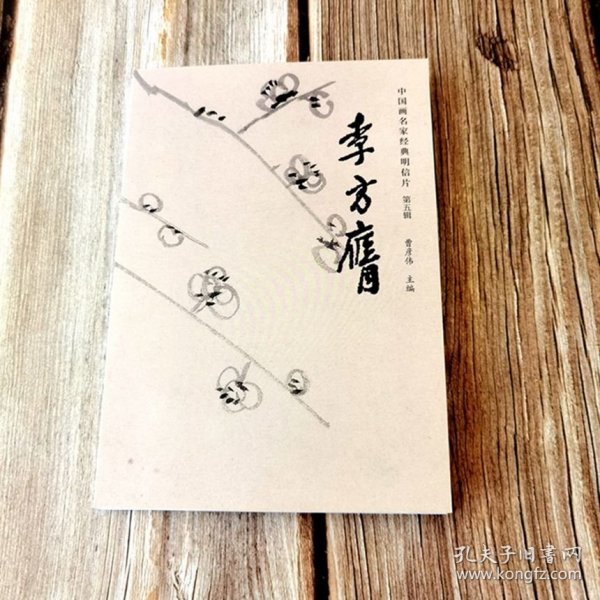 中国画名家经典明信片 第五辑
曹彦伟 主编
李方膺
孔夫子旧书网
www.kongfz.com